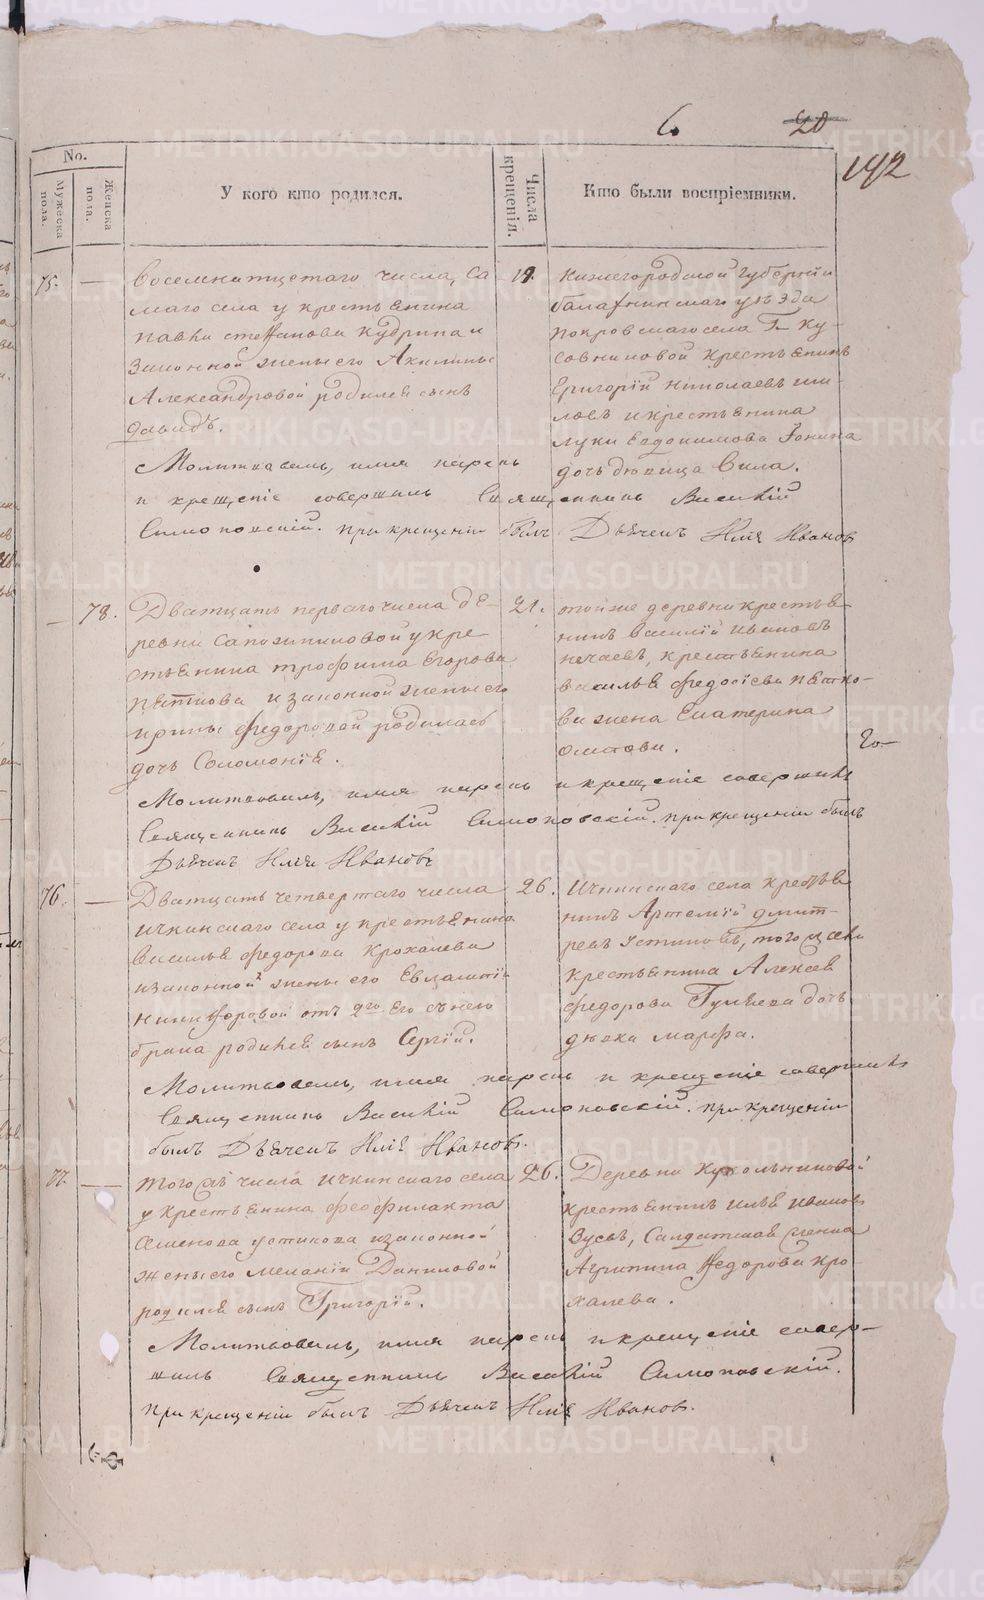 6 20
192
No.
Мужеска пола.
Женска пола.
У кого кто родился.
Числа крещенія.
Кто были воспріемники.
75. — Восемнатцетаго числа, са
маго села у крестьянина
Павла Стефанова Кудрина и
законной жены его Акилины
Александровой родился сынъ
Давидъ.
19. Нижегородской губерніи
балахнинскаго уѣзда
покровскаго села
крестьянинъ
Григорій Николаевъ
ловъ и крестьянина
луки Евдокимова
дочь дѣвица
Молитвовалъ, имя нарекъ
и крещеніе совершилъ Священникъ Василій
Симоновскій. при крещеніи былъ Дьячекъ Илія Ивановъ
— 78. Дватцать перваго числа де-
ревни Сапожниковой у кре-
стьянина трофима Егорова
Пяткова и законной жены его
ирины федоровой родилась
дочь Соломонія.
21. той же деревни крестья-
нинъ василій ивановъ
нечаевъ, крестьянина
василья федосіева пятко-
ва жена Екатерина
Молитвовалъ, имя нарекъ и крещеніе совершилъ
Священникъ Василій Симоновскій. при крещеніи былъ
Дьячекъ Илія Ивановъ
76. — Дватцать четвертаго числа
ичкинскаго села у крестьянина
василья федорова Крохалева
и законной жены его Евлампіи
никифоровой отъ 2го его съ нею
брака родился сынъ Сергій.
26. Ичкинскаго села крестья
нинъ Артемій дмит-
ревъ Устиновъ, того же села
крестьянина Алексея
федорова Гуляева дочь
девка марфа.
Молитвовалъ, имя нарекъ и крещеніе совершилъ
Священникъ Василій Симоновскій. при крещеніи
былъ Дьячекъ Илія Ивановъ.
77. — того жъ числа ичкинскаго села
у крестьянина феофилакта
семенова устинова и законной
жены его меланіи Даниловой
родился сынъ Григорій.
26. Деревни Кукольниковой
крестьянинъ илья ивановъ
Зуевъ, Салдатская женка
Агрипина Федорова кро-
халева.
Молитвовалъ, имя нарекъ и крещеніе совер-
шилъ Священникъ Василій Симоновскій.
при крещеніи былъ Дьячекъ Илія Ивановъ.
METRIKI.GASO-URAL.RU